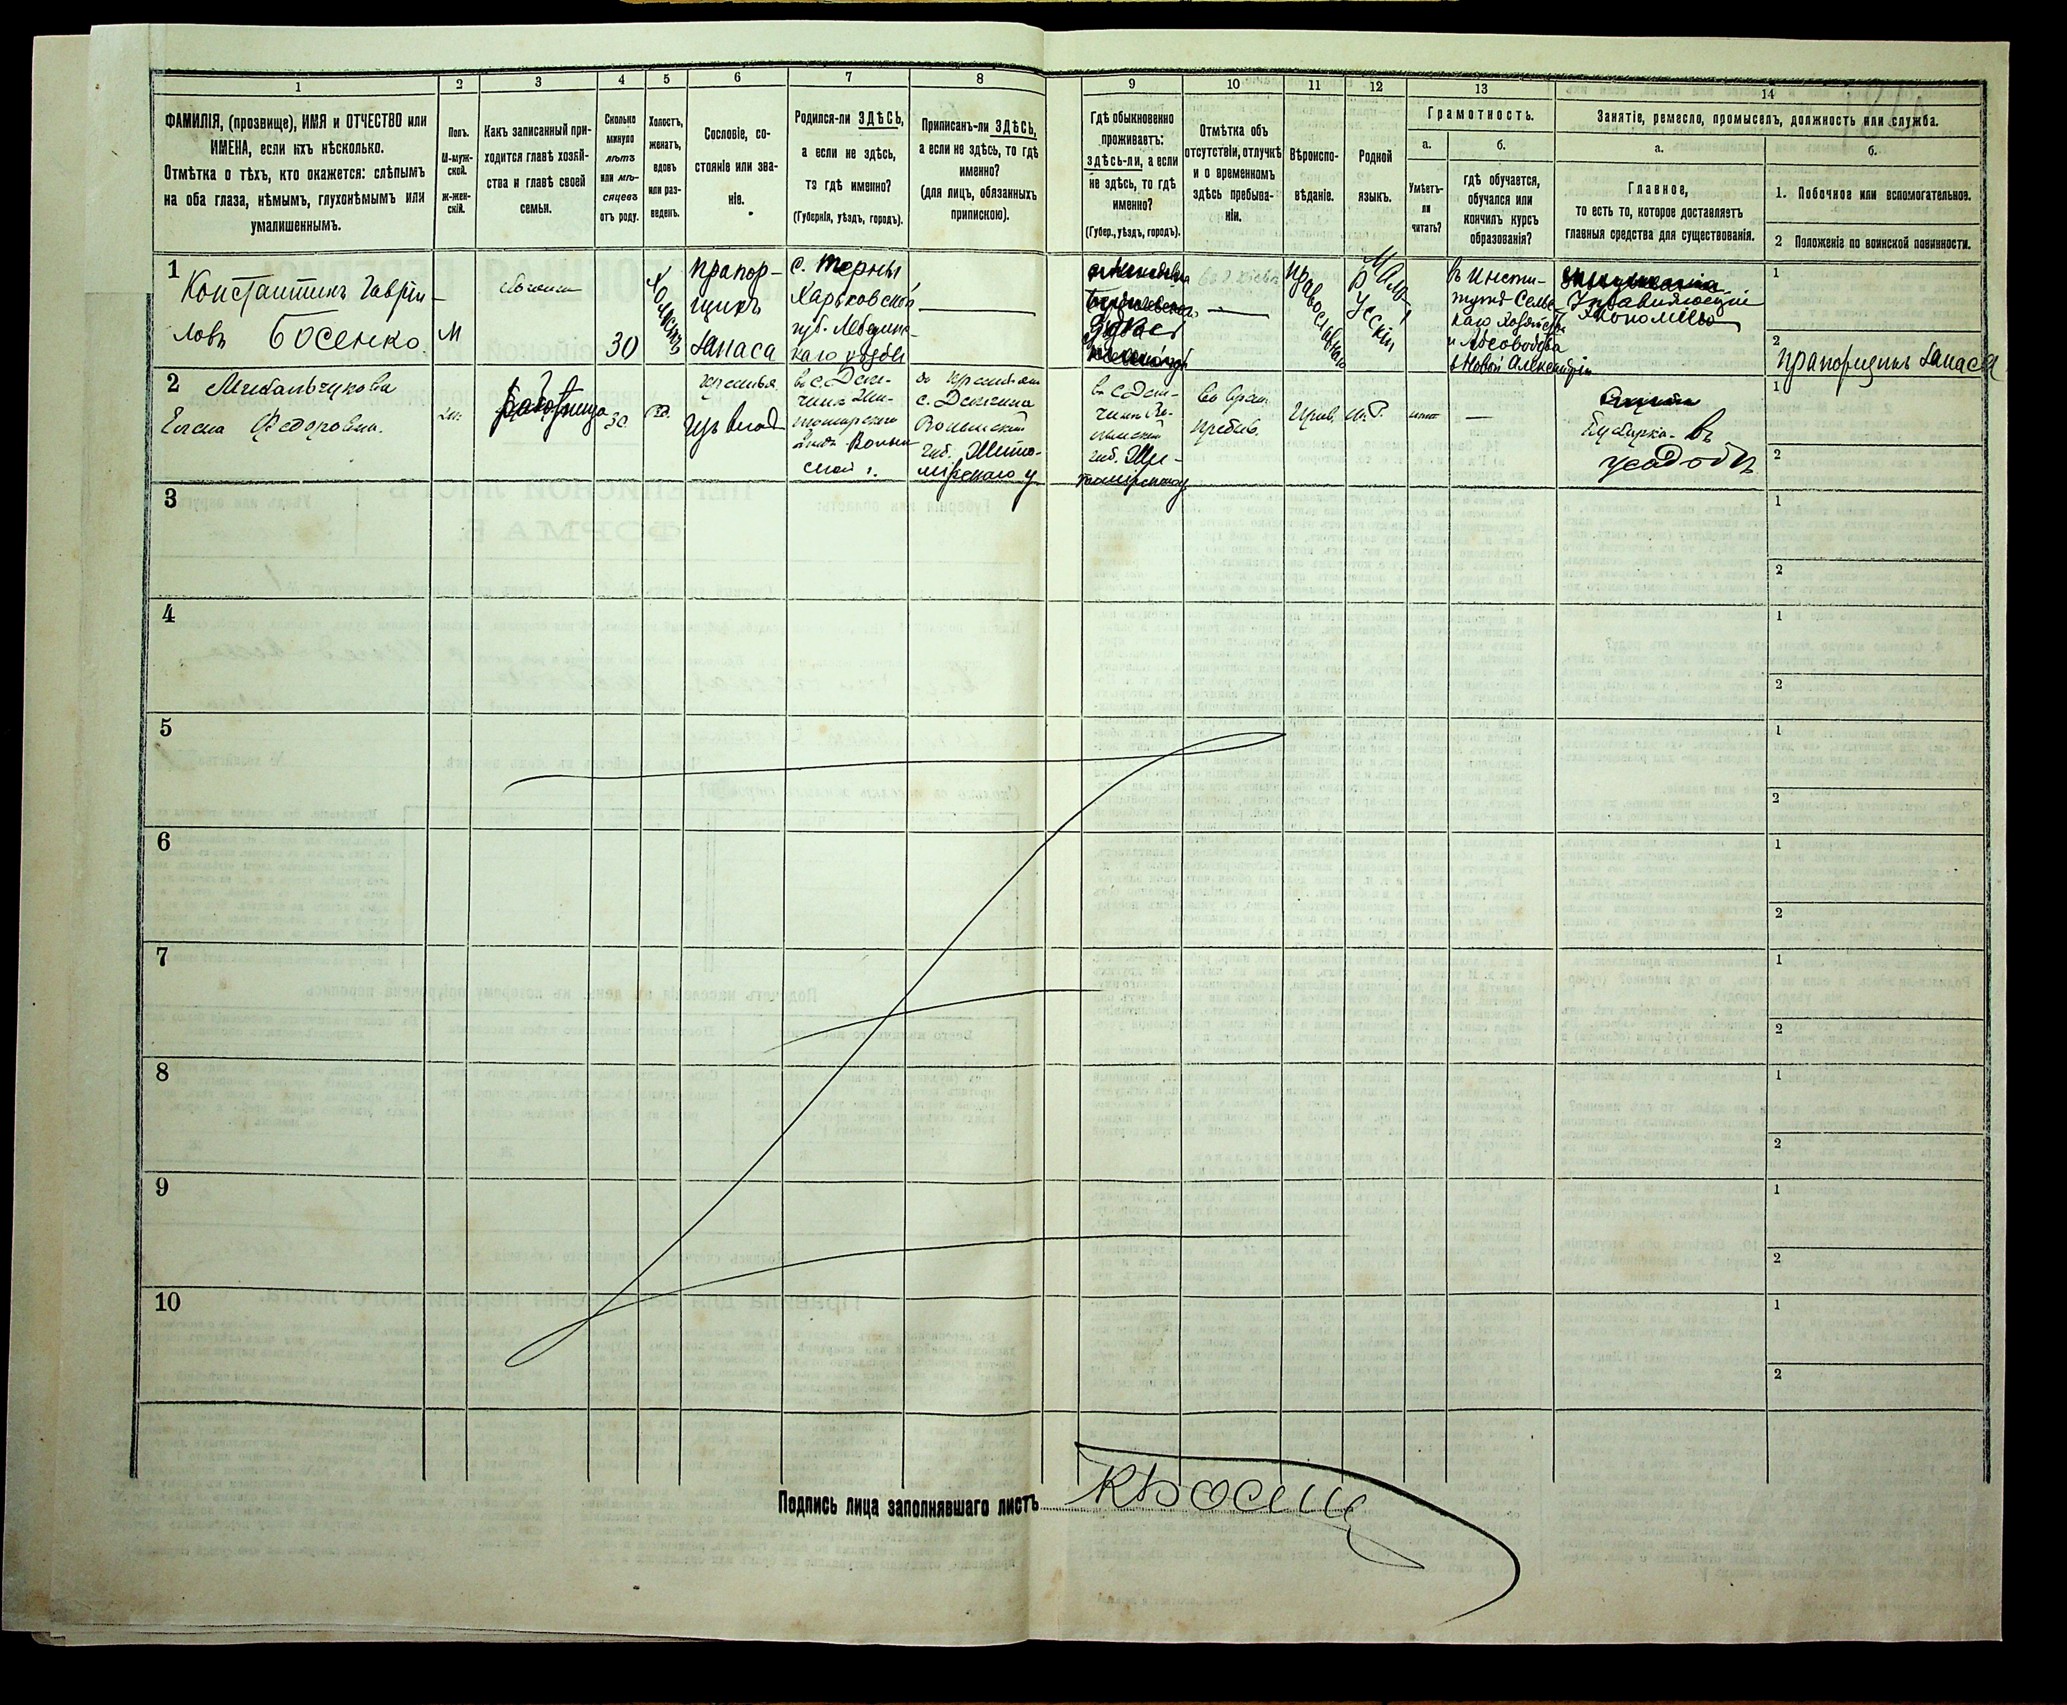 1
2
3
4
5
6
7
8
9
10
11
12
13
14
ФАМИЛІЯ, (прозвище), ИМЯ и ОТЧЕСТВО или
ИМЕНА, если ихъ нѣсколько.
Отмѣтка о тѣхъ, кто окажется: слѣпымъ
на оба глаза, нѣмымъ, глухонѣмымъ или
умалишеннымъ.
Полъ.
М-муж-
ской.
Ж-жен-
скій.
Какъ записанный при-
ходится главѣ хозяй-
ства и главѣ своей
семьи.
Сколько
минуло
лѣтъ
или мѣ-
сяцевъ
отъ роду.
Холостъ,
женатъ,
вдовъ
или раз-
веденъ.
Сословіе, со-
стояніе или зва-
ніе.
Родился-ли ЗДѢСЬ,
а если не здѣсь,
то гдѣ именно?
(Губернія, уѣздъ, городъ).
Приписанъ-ли ЗДѢСЬ,
а если не здѣсь, то гдѣ
именно?
(для лицъ, обязанныхъ
припискою).
Гдѣ обыкновенно
проживаетъ:
здѣсь-ли, а если
не здѣсь, то гдѣ
именно?
(Губер., уѣздъ, городъ).
Отмѣтка объ
отсутствіи, отлучкѣ
и о временномъ
здѣсь пребыва-
ніи.
Вѣроиспо-
вѣданіе.
Родной
языкъ.
Грамотность.
а.
Умѣетъ-
ли
читать?
б.
гдѣ обучается,
обучался или
кончилъ курсъ
образованія?
Занятіе, ремесло, промыселъ, должность или служба.
а.
Главное,
то есть то, которое доставляетъ
главныя средства для существованія.
б.
1. Побочное или вспомогательное.
2 Положеніе по воинской повинности.
1
Константинъ Гаврiи-
ловъ Босенко
М
30
Холостъ
прапор-
щикъ
запаса
с. Терны
Харьковской
губ. Лебедин-
каго уѣзда
Православное
Мало-
Русскій
въ Инсти-
тутѣ Сельс
каго Хозяйства
и Лѣсоводства
в Новой Александріи
Управляющій
Экономіею
1
2
Прапорщикъ Запаса
2
Михальчукова
Елена Федоровна.
жн.
работница
30
крестья
изъ влад
въ с.
Жи-
томирскаго
Волын
ской г.
с.
Волынской
губ. Жито-
мірскаго у
въ с.
губ. Жи-
томірскаго у
во врем.
пребыв.
Прав.
м.Р.
—
Кухарка въ
усадьбѣ
1
2
3
1
2
4
1
2
5
1
2
6
1
2
7
1
2
8
1
2
9
1
2
10
1
2
Подпись лица заполнявшаго листъ
КБосенко